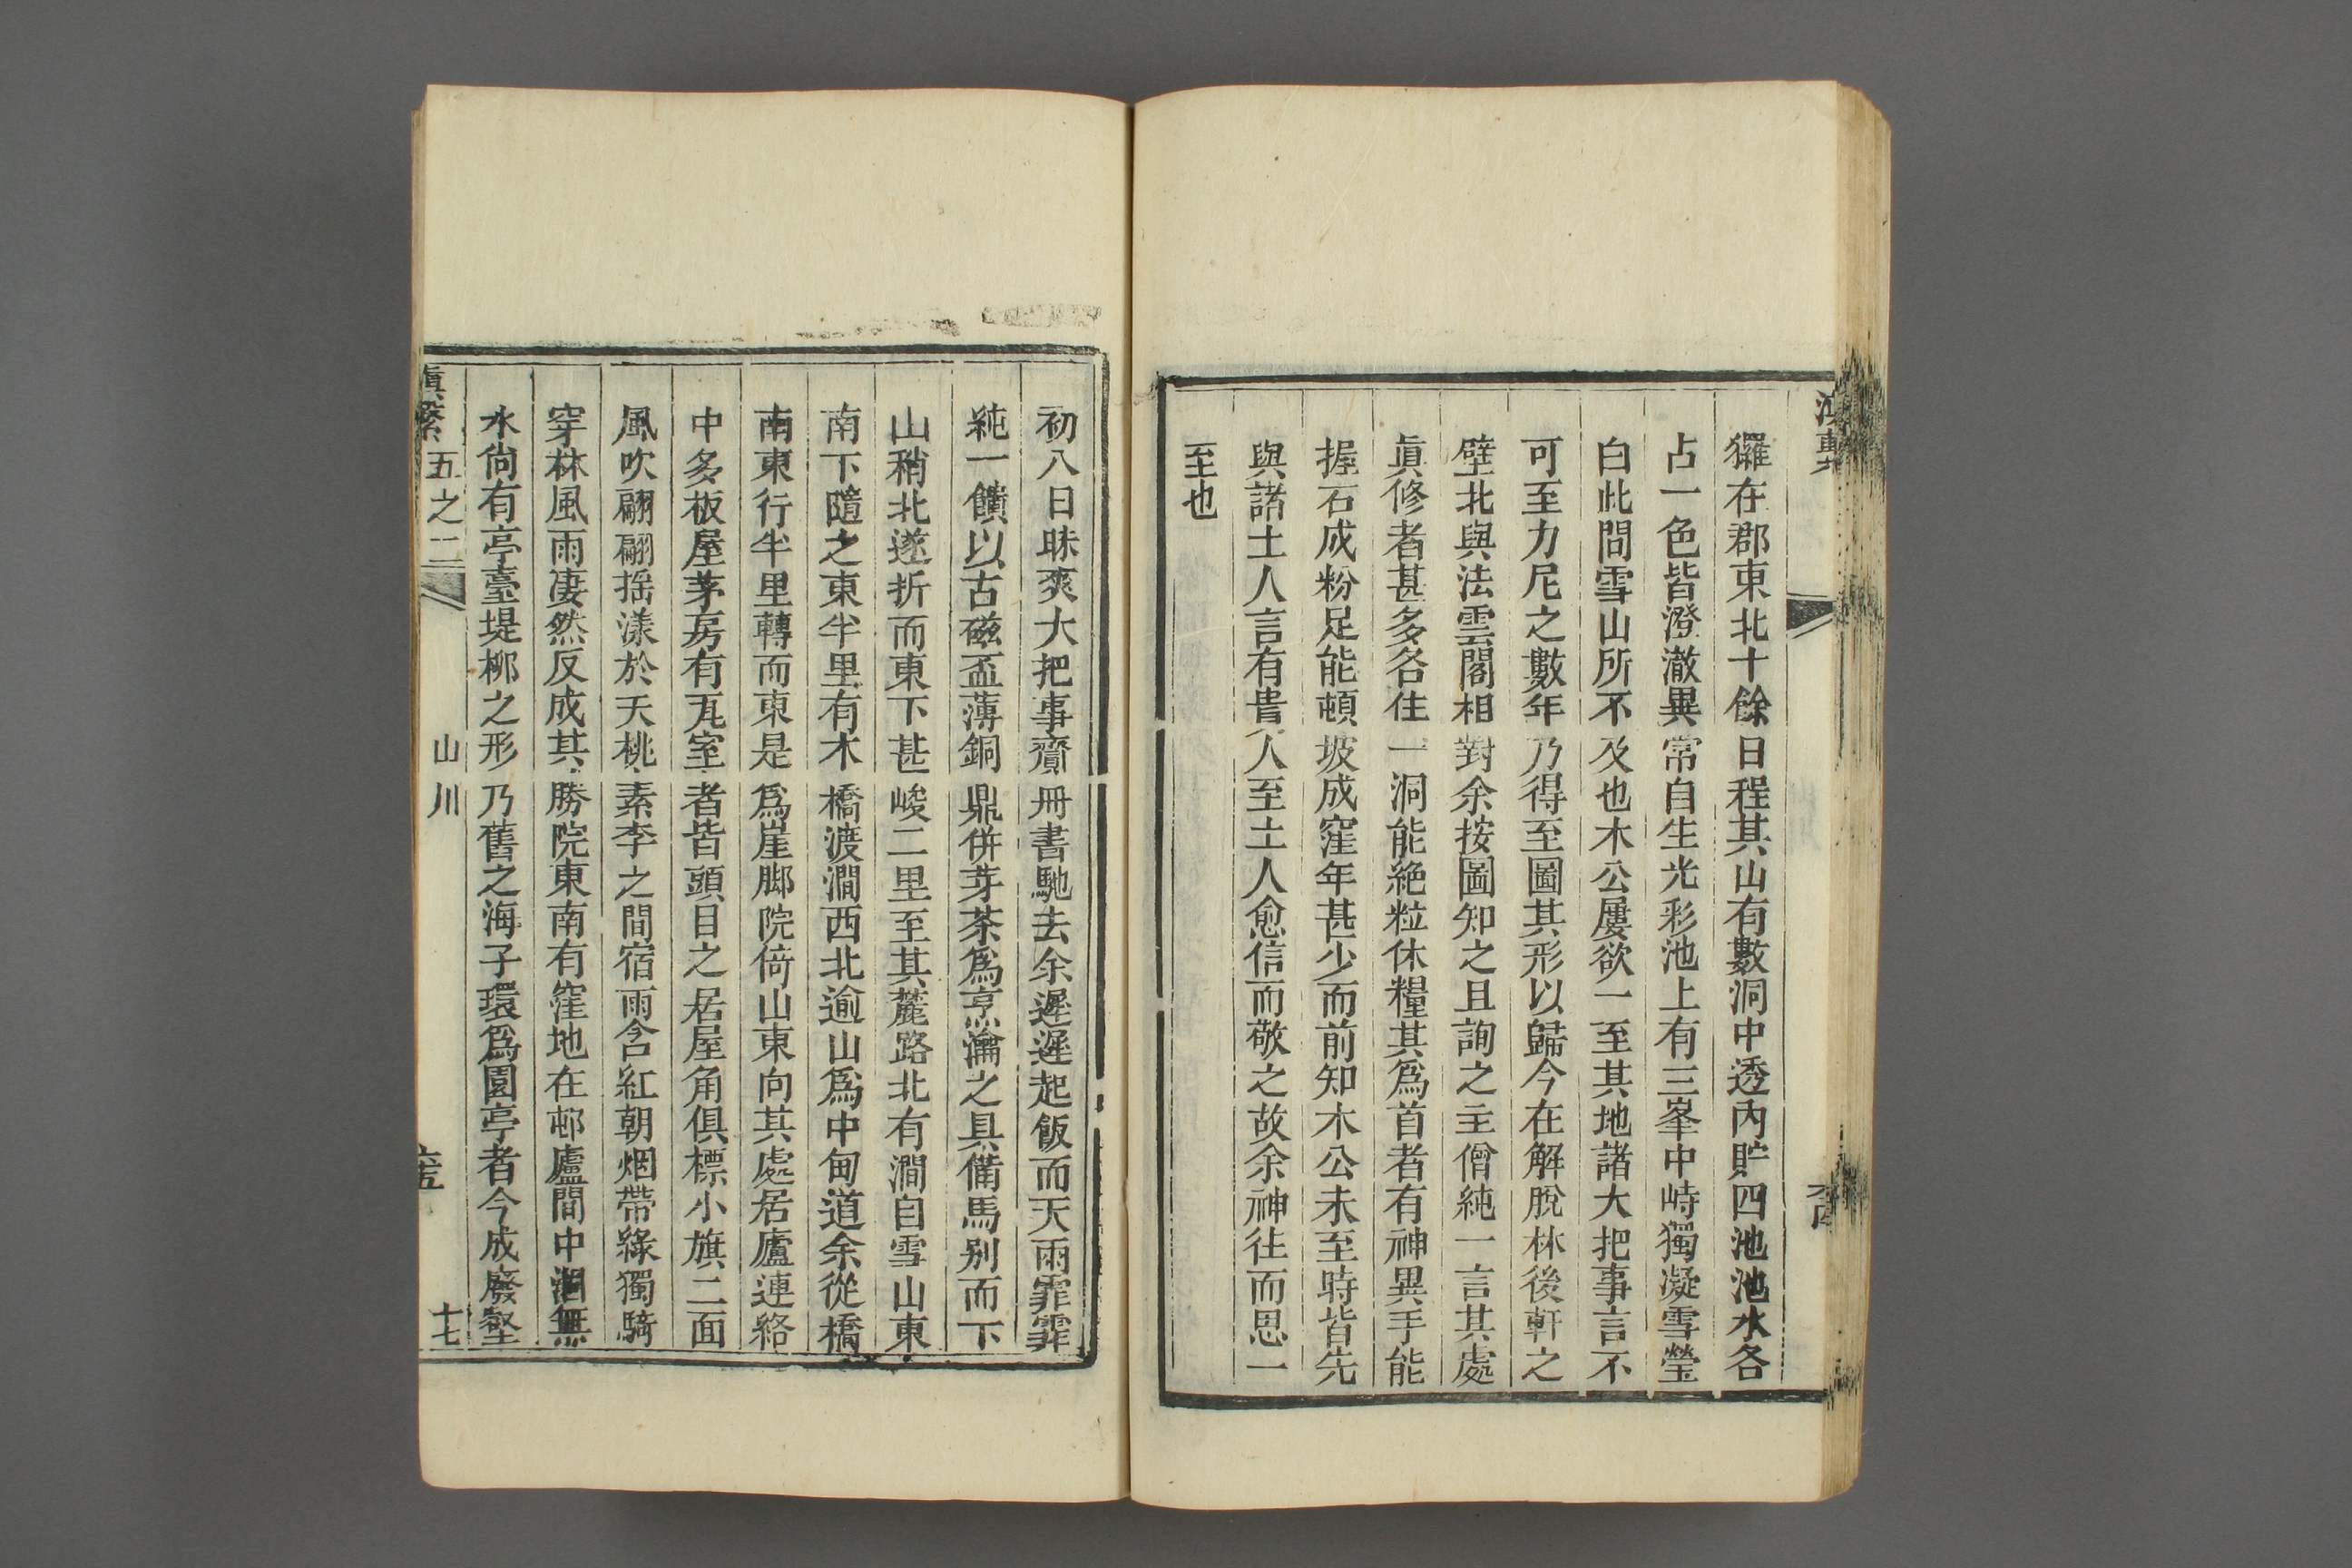 玀在郡東北十餘日程其山有數洞中透內貯四池池水各
占一色皆澄澈異常自生光彩池上有三峯中峙獨凝雪瑩
白此間雪山所不及也木公屢欲一至其地諸大把事言不
可至力尼之數年乃得至圖其形以歸今在解脫林後軒之
壁北與法雲閣相對余按圖知之且詢之主僧純一言其處
眞修者甚多各住一洞能絶粒休糧其爲首者有神異手能
握石成粉足能頓坡成窪年甚少而前知木公未至時皆先
與諸土人言有貴人至土人愈信而敬之故余神往而思一
至也
初八日昧爽大把事齎冊書馳去余遲遲起飯而天雨霏霏
純一饋以古磁盃薄銅鼎併芽茶爲烹瀹之具備馬別而下
山稍北遂折而東下甚峻二里至其麓路北有澗自雪山東
南下隨之東半里有木橋渡澗西北逾山爲中甸道余從橋
南東行半里轉而東是爲崖脚院倚山東向其處居廬連絡
中多板屋茅房有瓦室者皆頭目之居屋角俱標小旗二面
風吹翩翩揺漾於天桃素李之間宿雨含紅朝烟帶綠獨騎
穿林風雨凄然反成其勝院東南有窪地在邨廬間中涸無
水尙有亭臺堤栁之形乃舊之海子環爲園亭者今成廢壑
滇繫 五之二 山川 十七